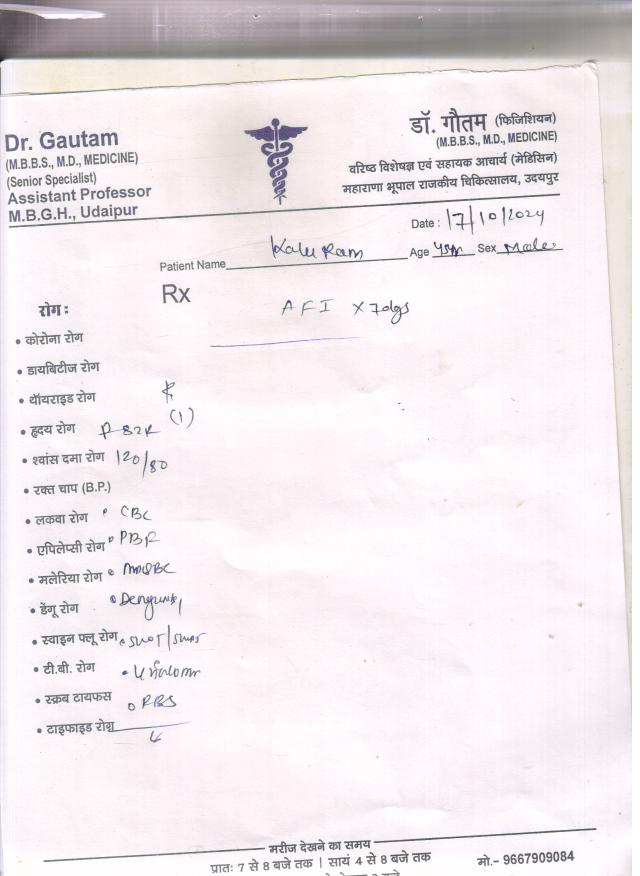 Dr. Gautam
(M.B.B.S., M.D., MEDICINE)
(Senior Specialist)
Assistant Professor
M.B.G.H., Udaipur
डॉ. गौतम (फिजिशियन)
(M.B.B.S., M.D., MEDICINE)
वरिष्ठ विशेषज्ञ एवं सहायक आचार्य (मेडिसिन)
महाराणा भूपाल राजकीय चिकित्सालय, उदयपुर
Date : 17/10/2024
Patient Name Kalu Ram Age Sex Male
Rx
AFI x 7 days
रोग :
• कोरोना रोग
• डायबिटीज रोग
• थॉयराइड रोग
• हृदय रोग P 82 (1)
• श्वांस दमा रोग 120/80
• रक्त चाप (B.P.)
• लकवा रोग • CBC
• एपिलेप्सी रोग • PBF
• मलेरिया रोग
• डेंगू रोग
• स्वाइन फ्लू रोग • SGOT/
• टी.बी. रोग
• स्क्रब टायफस • RBS
• टाइफाइड रोग
मरीज देखने का समय
प्रातः 7 से 8 बजे तक | सायं 4 से 8 बजे तक
मो.- 9667909084